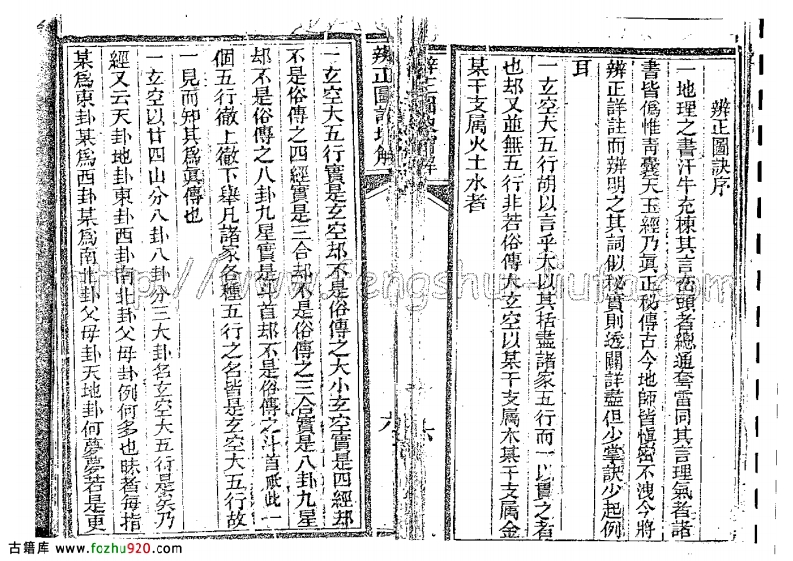 辨正圖訣序
一地理之書汗牛充棟其言巒頭者總通套雷同其言理氣者諸
書皆僞惟青囊天玉經乃眞正秘傳古今地師皆愼密不洩今將
辨正詳註而辨明之其詞似秘實則透闢詳盡但少掌訣少起例
耳
一玄空大五行胡以言乎大以其括盡諸家五行而一以貫之者
也却又並無五行非若俗傳大玄空以某干支属木某干支属金
某干支属火土水者
辨正圖訣
辨正圖訣
一玄空大五行實是玄空却不是俗傳之大小玄空實是四經却
不是俗傳之四經實是三合却不是俗傳之三合實是八卦九星
却不是俗傳之八卦九星實是斗首却不是俗傳之斗首祇此一
個五行徹上徹下舉凡諸家各種五行之名皆是玄空大五行故
一見而知其爲眞傳也
一玄空以廿四山分八卦八卦分三大卦名玄空大五行是矣乃
經又云天卦地卦東卦西卦南北卦父母卦例何多也昧者每指
某爲東卦某爲西卦某爲南北卦父母卦天地卦何夢夢若是更
http://www.fengshui-liufa.com
古籍库 www.fozhu920.com